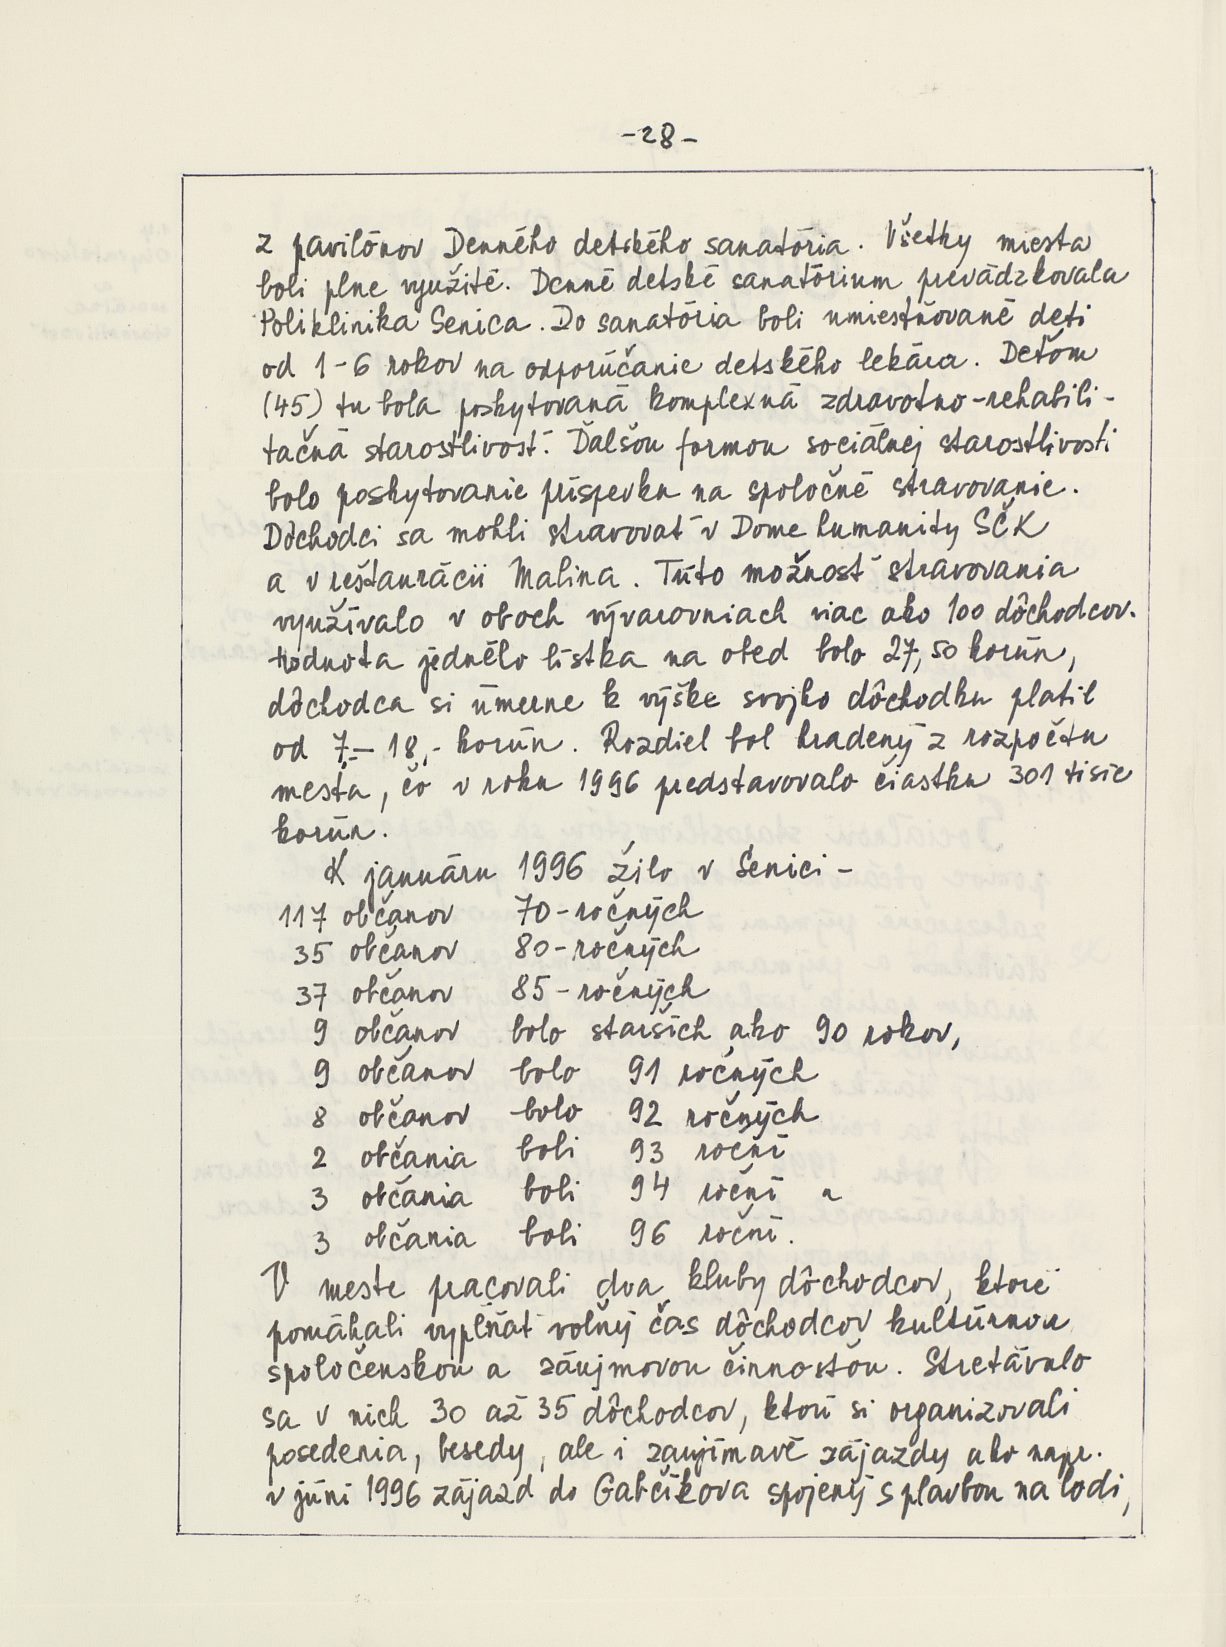 -28-
z pavilónov Denného detského sanatória. Všetky miesta
boli plne využité. Denné detské sanatórium prevádzkovala
Poliklinika Senica. Do sanatória boli umiestňované deti
od 1-6 rokov na odporúčanie detského lekára. Deťom
(45) tu bola poskytovaná komplexná zdravotno-rehabili-
tačná starostlivosť. Ďalšou formou sociálnej starostlivosti
bolo poskytovanie príspevku na spoločné stravovanie.
Dôchodci sa mohli stravovať v Dome humanity SČK
a v reštaurácii Malina. Túto možnosť stravovania
využívalo v oboch vývarovniach viac ako 100 dôchodcov.
Hodnota jedného lístka na obed bolo 27,50 korún,
dôchodca si úmerne k výške svojho dôchodku platil
od 7,- 18,- korún. Rozdiel bol hradený z rozpočtu
mesta, čo v roku 1996 predstavovalo čiastku 301 tisíc
korún.
K januáru 1996 žilo v Senici -
117 občanov 70-ročných
35 občanov 80-ročných
37 občanov 85-ročných
9 občanov bolo starších ako 90 rokov,
9 občanov bolo 91 ročných
8 občanov bolo 92 ročných
2 občania boli 93 roční
3 občania boli 94 roční a
3 občania boli 96 roční.
V meste pracovali dva kluby dôchodcov, ktoré
pomáhali vyplňať voľný čas dôchodcov kultúrnou
spoločenskou a záujmovou činnosťou. Stretávalo
sa v nich 30 až 35 dôchodcov, ktorí si organizovali
posedenia, besedy, ale i zaujímavé zájazdy ako napr.
v júni 1996 zájazd do Gabčíkova spojený s plavbou na lodi,